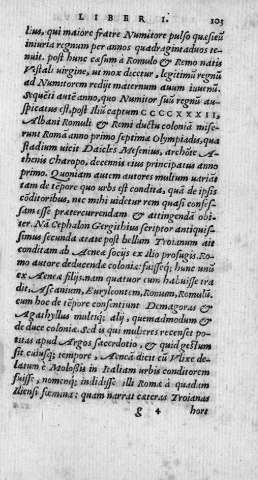 LIBER I. 103
lius, qui maiore fratre Numitore pulso quæsitũ
iniuria regnum per annos quadraginta duos te
nuit. post hunc cæsum à Romulo & Remo natis
Vestali virgine, ut mox dicetur, legitimũ regnũ
ad Numitorem redijt maternum auum iuuenũ.
Sequẽti autẽ anno, quo Numitor suũ regnũ au-
spicatus est, post Iliũ captum CCCCXXXII,
Albani Romuli & Remi ductu coloniã mise-
runt Romã anno primo septimæ Olympiadis, qua
stadium uicit Daicles Mesenius, archõte A-
thenis Charopo, decennis eius principatus anno
primo. Quoniam autem autores multum variãt
tam de tẽpore quo urbs est condita, quã de ipsis
cõditoribus, nec mihi uidetur rem quasi confes-
sam esse prætercurrendam & attingenda obi-
ter. Nã Cephalon Gergithius scriptor antiquis-
simus secunda ætate post bellum Troianum ait
conditam ab Aeneæ socijs ex Ilio profugis. Ro-
mo autore deducendæ coloniæ: fuisseq; hunc unũ
ex Aeneæ filijs. nam quatuor eum habuisse tra
dit, Ascanium, Euryleontem, Romum, Romulũ.
cum hoc de tẽpore consentiunt Demagoras &
Agathyllus multiq; alij, quemadmodum &
de duce coloniæ. Sed is qui mulieres recenset po-
titas apud Argos sacerdotio, & quid gestum
sit cuiusq; tempore, Aeneã dicit cũ Vlixe de-
latum è Molossis in Italiam urbis conditorem
fuisse, nomenq; indidisse illi Roma à quadam
Iliensi fœmina: quam narrat cæteras Troianas
g 4 hor-